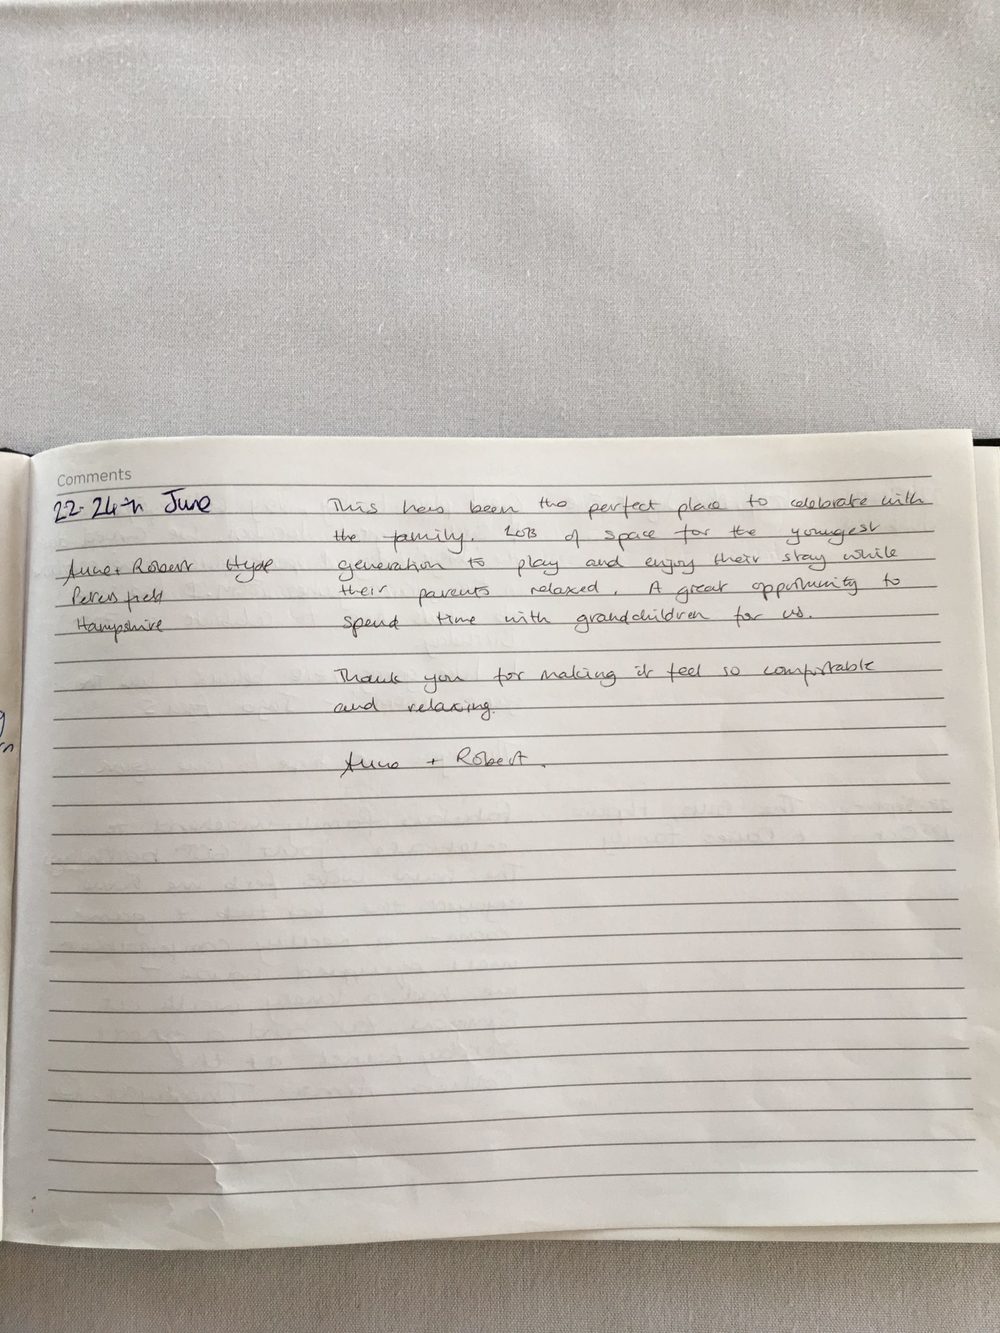 Comments
22-24th June
This has been the perfect place to celebrate with
the family. Lots of space for the youngest
Anne + Robert Hyde
generation to play and enjoy their stay while
Petersfield
their parents relaxed. A great opportunity to
Hampshire
spend time with grandchildren for us.
Thank you for making it feel so comfortable
and relaxing.
Anne + Robert.